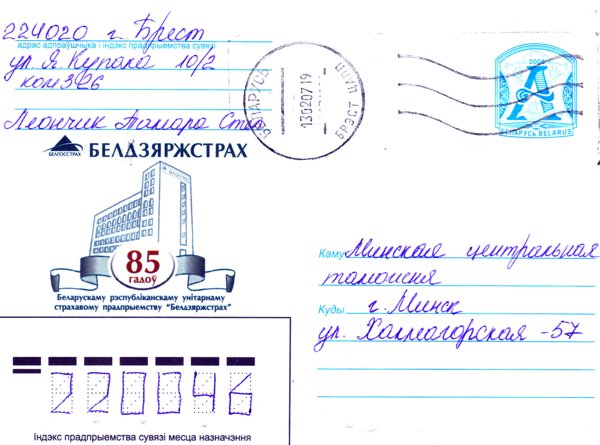 224020 г. Брест
адрас адпраўшчыка і індэкс прадпрыемства сувязі
ул. Я. Купала 10/2
ком 326
Леончик Тамара Степ
БЕЛАРУСЬ
13020719
БРЭСТ
2006
А
БЕЛАРУСЬ BELARUS
БЕЛГОССТРАХ
БЕЛДЗЯРЖСТРАХ
85
гадоў
Беларускаму рэспубліканскаму унітарнаму
страхавому прадпрыемству "Белдзяржстрах"
Каму Минская центральная
таможня
Куды г. Минск
ул. Халмагорская - 57
220046
Індэкс прадпрыемства сувязі месца назначэння